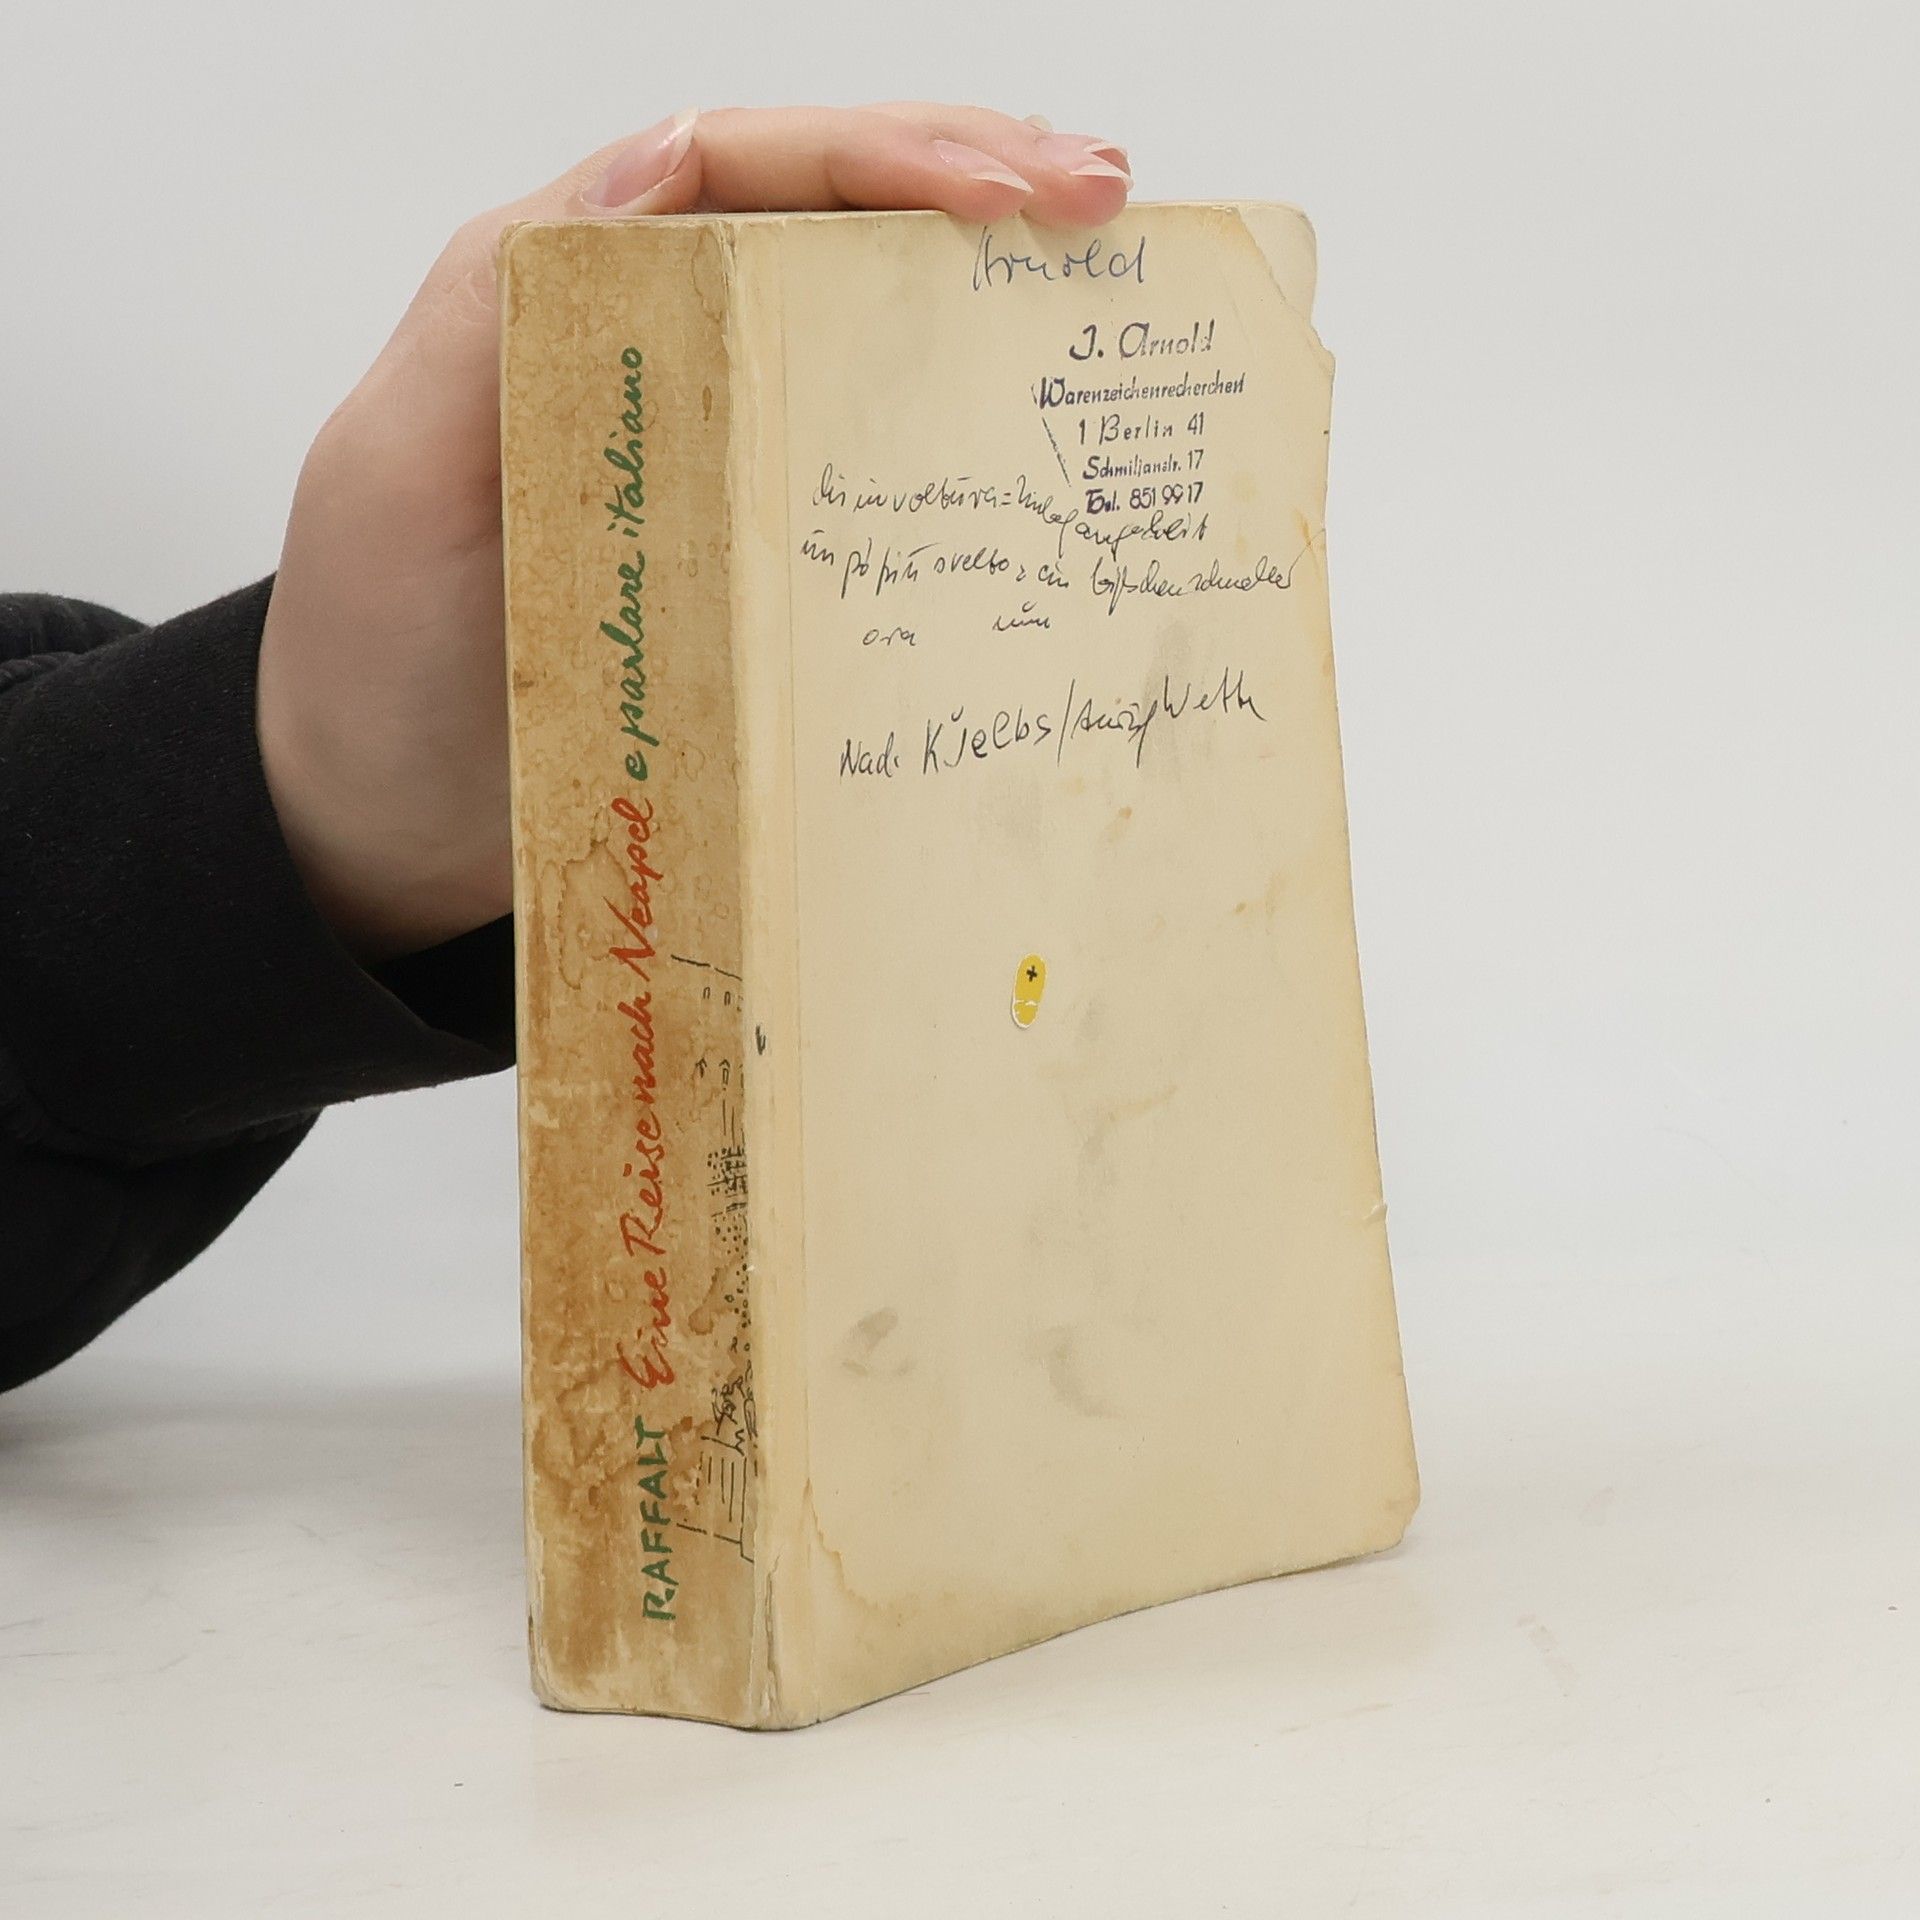 RAFFALT Eine Reise nach Neapel e parlare italiano
Arnold
J. Arnold
Warenzeichenrecherchen
1 Berlin 41
Schmiljanstr. 17
Tel. 851 99 17
disinvoltura =
un pò più svelto = ein bißchen schneller
ora nun